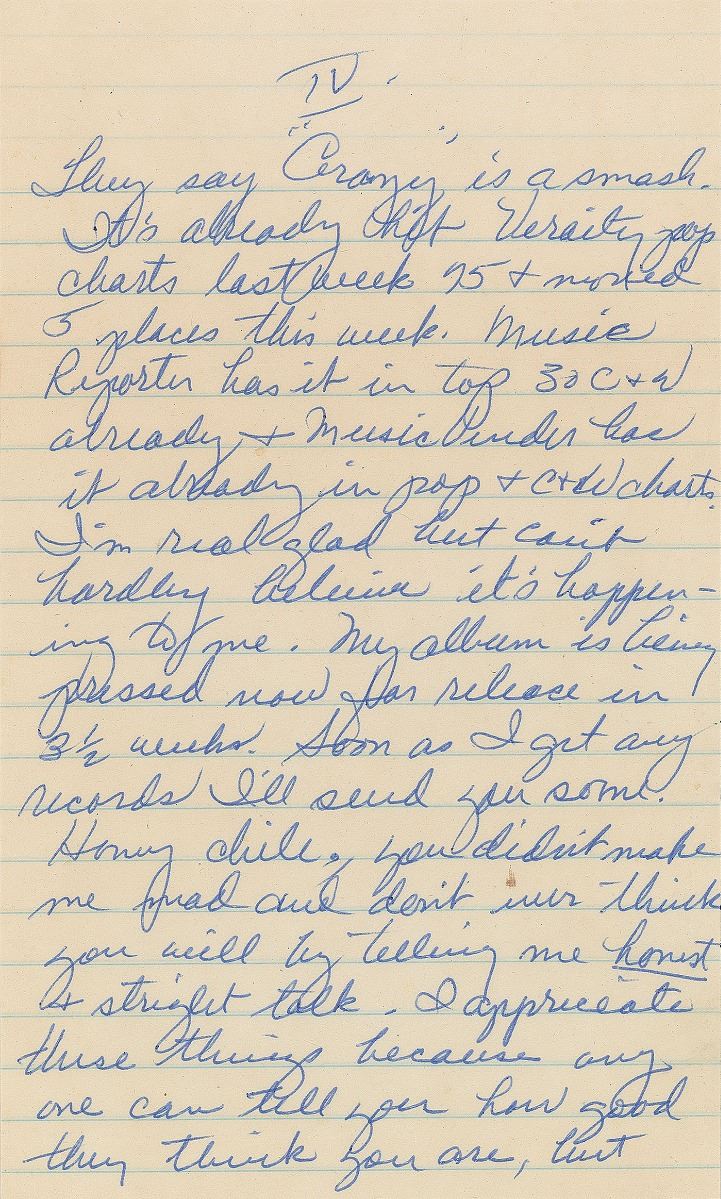 IV.
They say "Crazy", is a smash.
It's already hit Veraity pop
charts last week 95 + moved
5 places this week. Music
Reporter has it in top 30 C+W
already + Music Vender has
it already in pop + C+W charts.
I'm real glad but can't
hardley believe it's happen-
ing to me. My album is being
pressed now for releace in
3½ weeks. Soon as I get any
records I'll send you some.
Honey chile, you didn't make
me mad and don't ever think
you will by telling me honest
+ stright talk. I appriceate
these things because any
one can tell you how good
they think you are, but